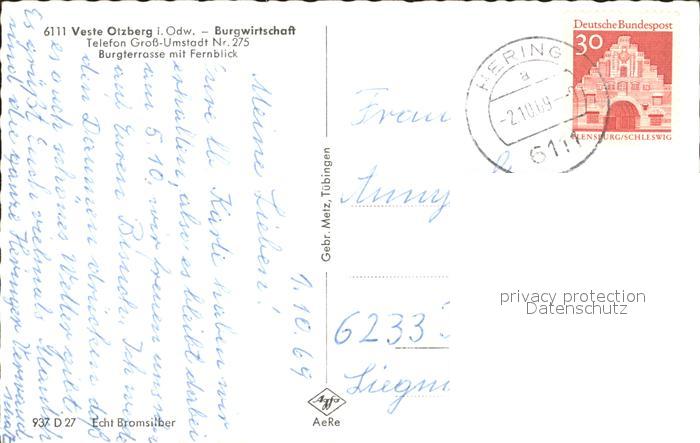 6111 Veste Otzberg i. Odw. – Burgwirtschaft
Telefon Groß-Umstadt Nr. 275
Burgterrasse mit Fernblick
1.10.69
Meine Lieben!
Eure lb. Karte haben wir
erhalten, also es bleibt dabei
am 5.10. wir freuen uns
auf Euren Besuch. Ich werde
den Daumen drücken daß
es auch schönes Wetter gibt
Es grüßt Euch vielmals
und die ganze Heringer Verwandschaft
Gebr. Metz, Tübingen
Deutsche Bundespost
30
FLENSBURG/SCHLESWIG
HERING
a
-2.10.69
6111
Frau
Anny
6233
privacy protection
Datenschutz
Agfa
AeRe
937 D 27 Echt Bromsilber